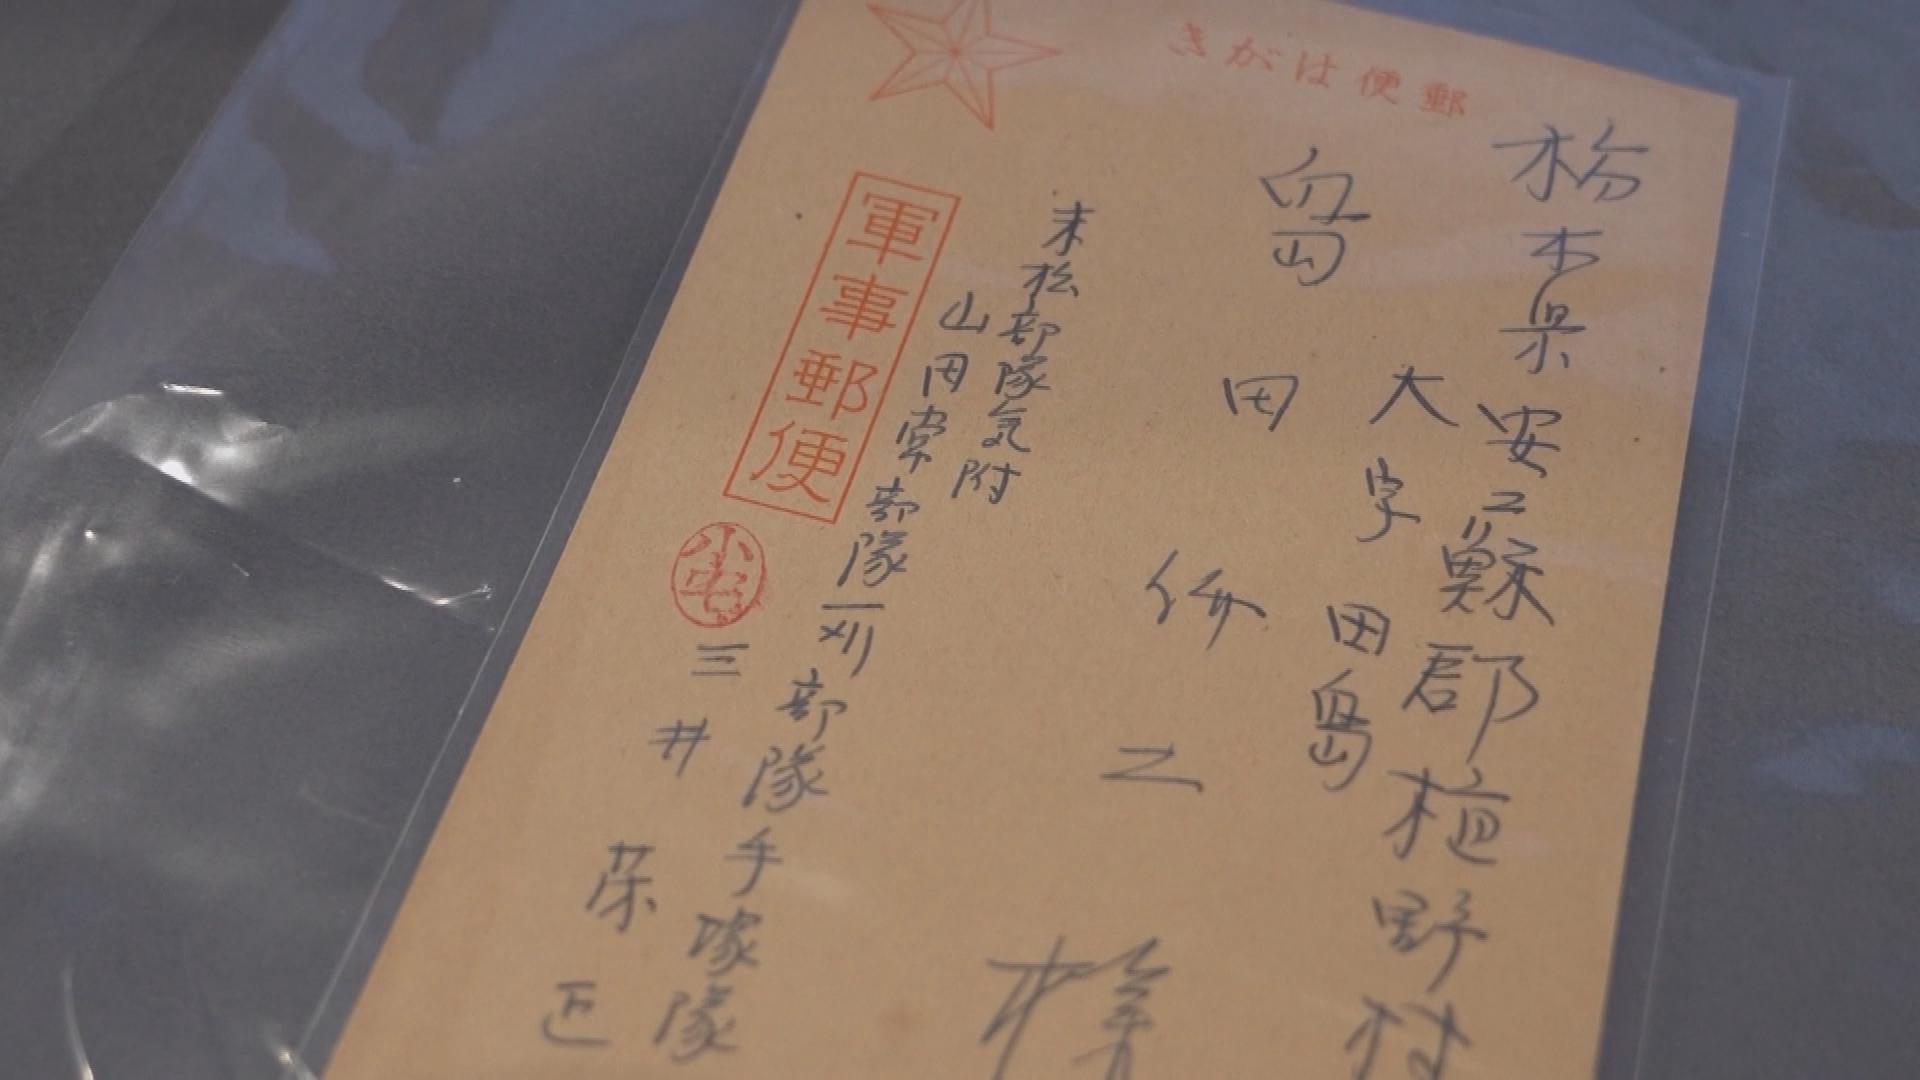 郵便はがき
栃木県安蘇郡植野村
大字田島
島田之様
末松部隊気附
山田常部隊苅部隊手塚隊
軍事郵便
小宅
三井栄